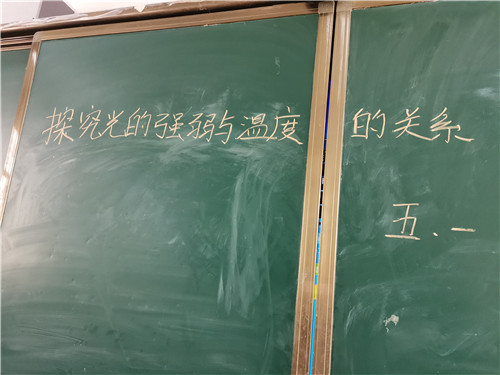 探究光的强弱与温度的关系
五、一